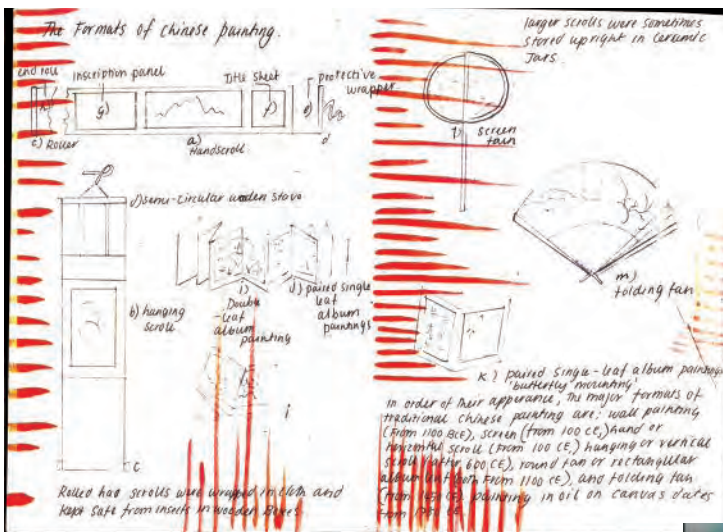 The Formats of Chinese painting.
end roll
inscription panel
Title Sheet
protective
wrapper
g)
f)
e)
c) Roller
a)
Handscroll
d
d) semi-circular wooden stave
b) hanging
scroll
i)
Double
-leaf
album
painting
j) paired single
leaf
album
paintings
C
Rolled had scrolls were wrapped in cloth and
kept safe from insects in wooden Boxes
larger scrolls were sometimes
stored upright in ceramic
Jars.
screen
m)
folding fan
K) paired single-leaf album paintings
'butterfly mounting'
in order of their apperance, the major formats of
traditional Chinese painting are: wall painting
(From 1100 BCE), screen (from 100 CE,) hand or
horizontal scroll (From 100 CE,) hanging or vertical
scroll (after 600 CE), round fan or rectangular
album leaf (both From 1100 CE), and folding fan
(from 1450 CE). painting in oil on canvas dates
from CE